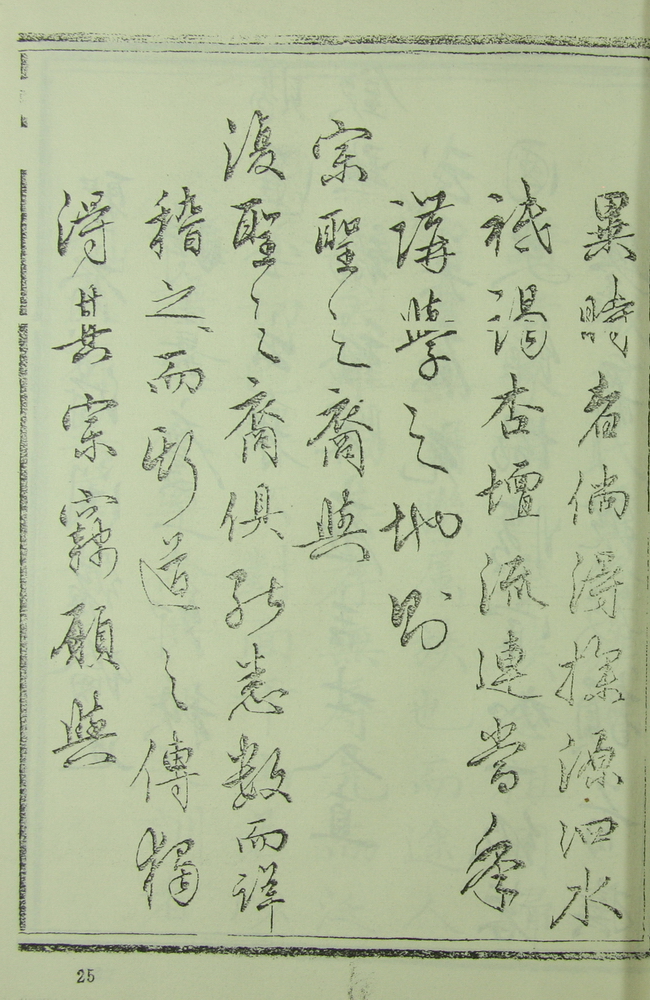 異時者倘得探源泗水
祗謁杏壇流連當年
講學之地則
宗聖之裔與
復聖之裔俱能悉數而詳
稽之而斯道之傳獨
得其宗竊願與
25